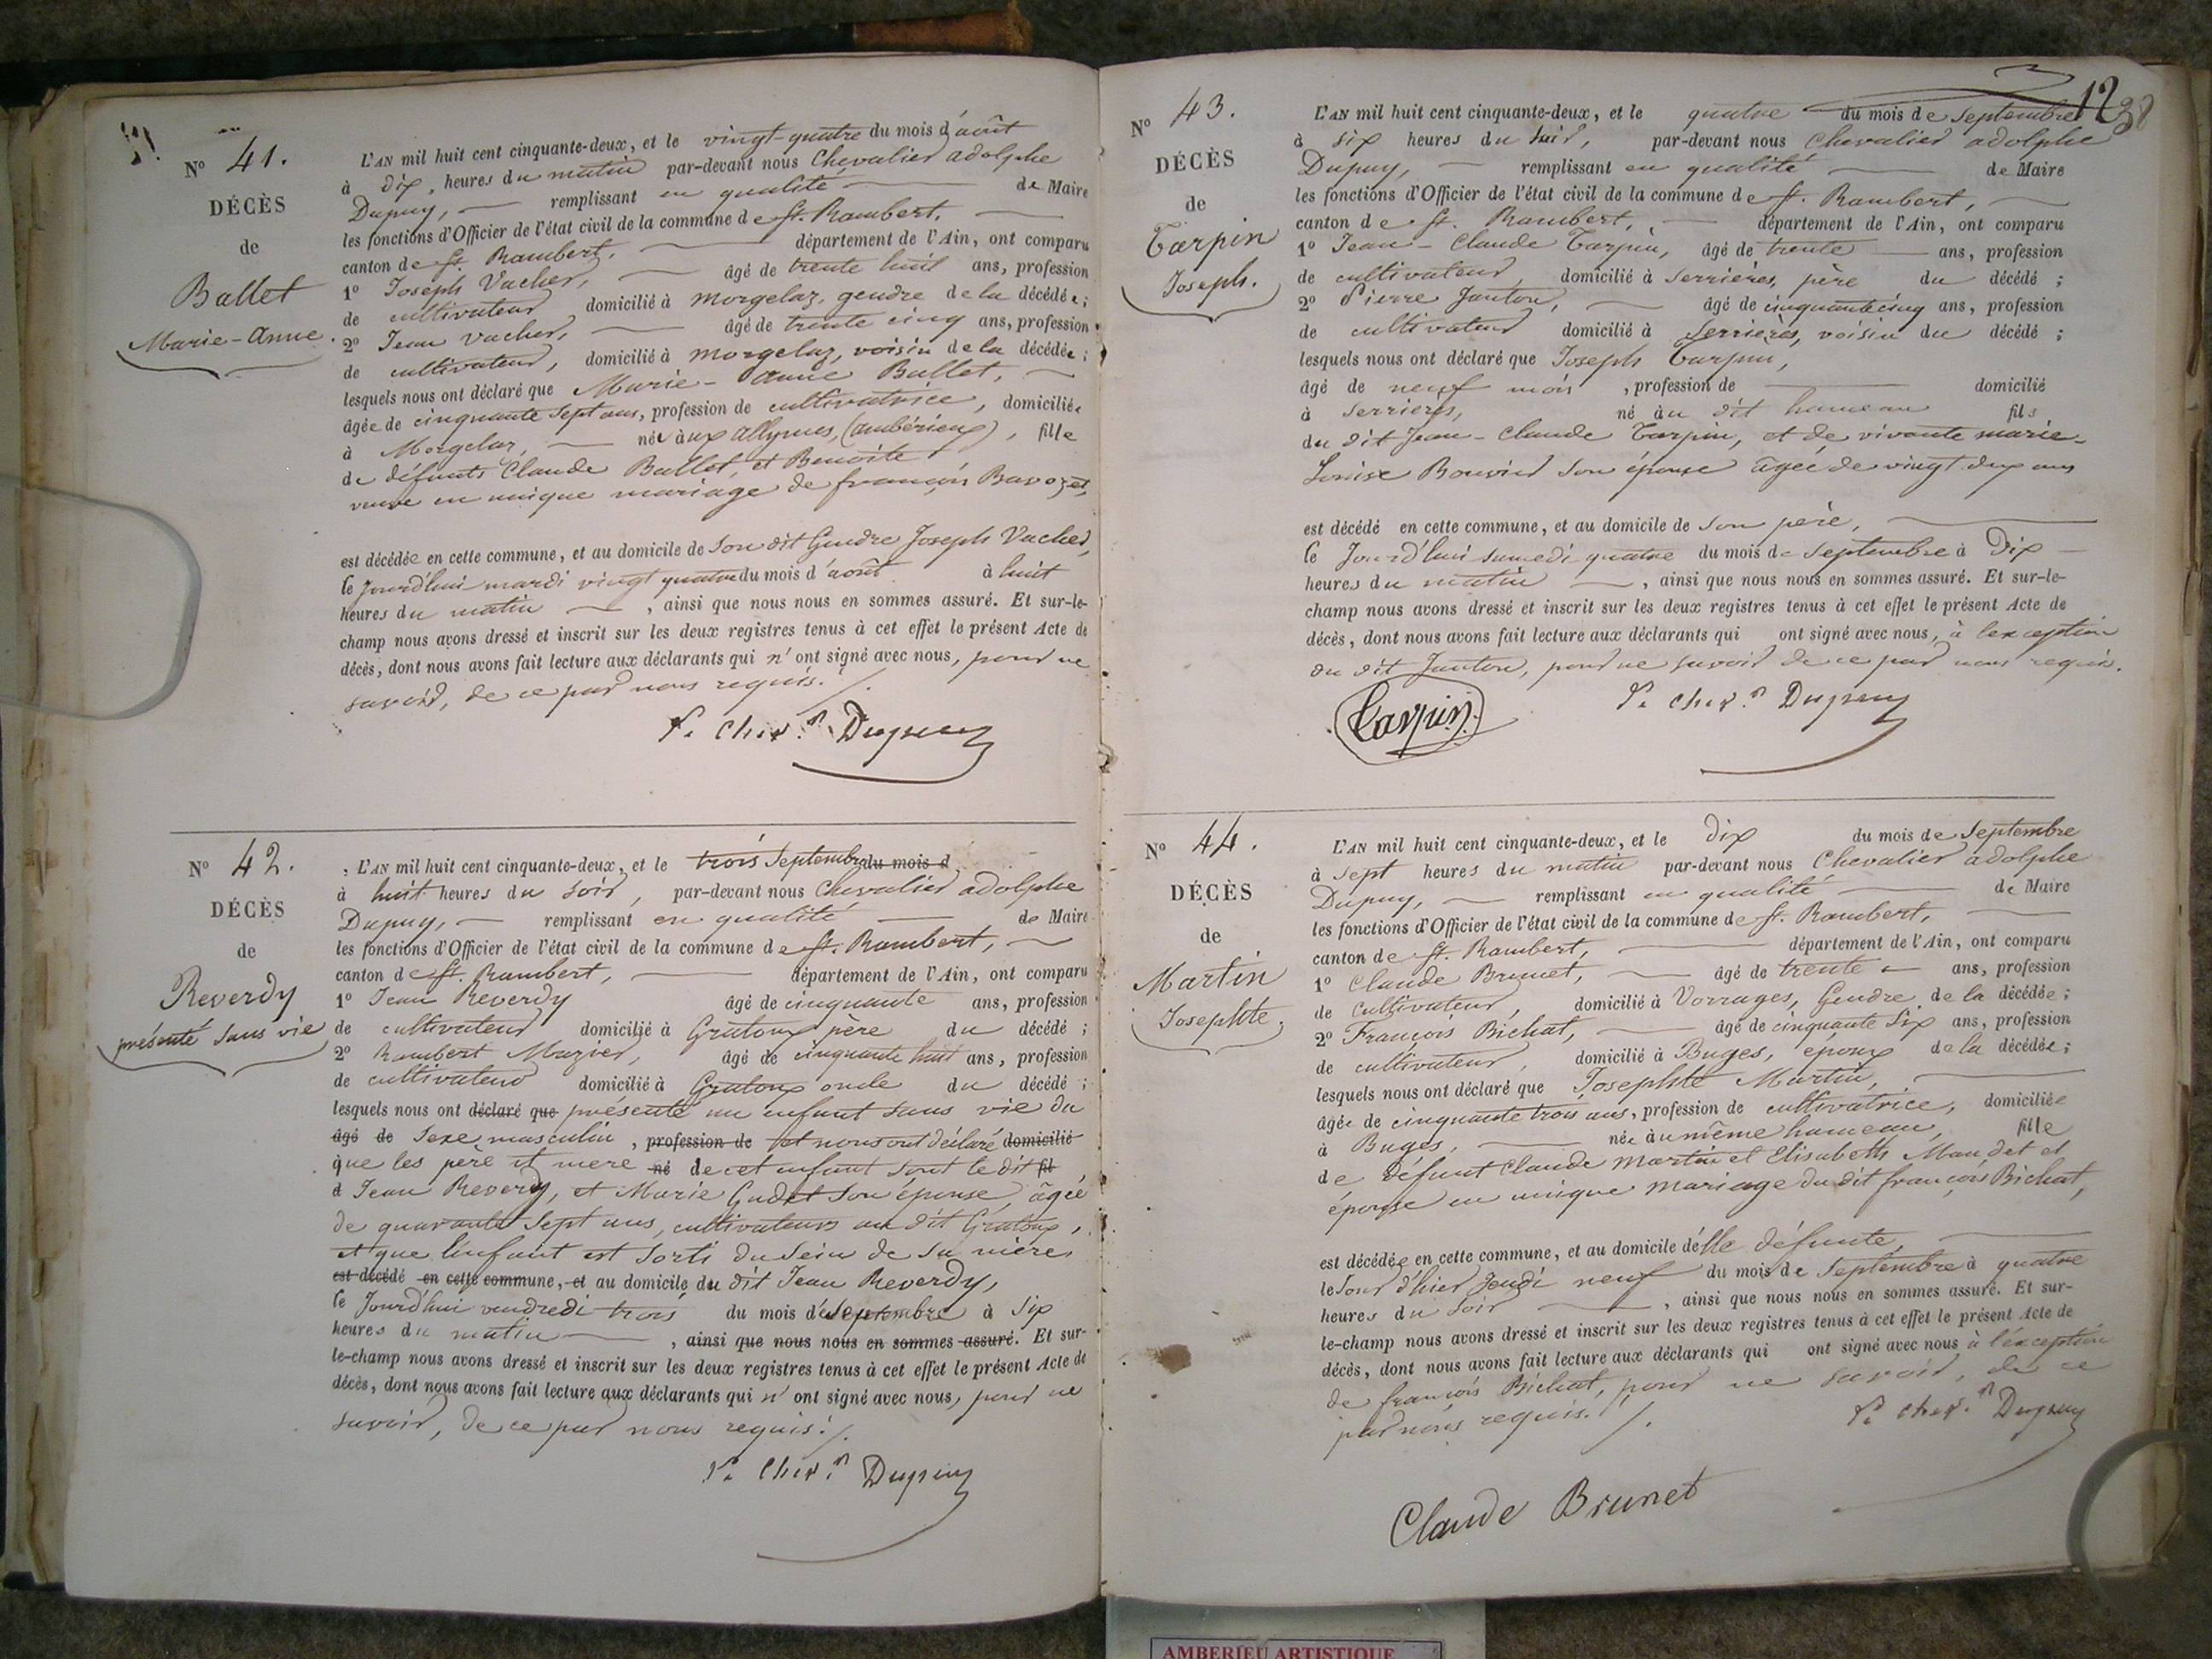 Nº 41.
DÉCÈS
de
Ballet
Marie-Anne.
L'AN mil huit cent cinquante-deux, et le vingt-quatre du mois d'août
à dix, heures du matin par-devant nous Chevalier adolphe
Dupuy, remplissant en qualité de Maire
les fonctions d'Officier de l'état civil de la commune de St. Rambert.
canton de St. Rambert. département de l'Ain, ont comparu
1º Joseph Vacher, âgé de trente huit ans, profession
de cultivateur domicilié à Morgelaz, gendre de la décédée;
2º Jean Vacher, âgé de trente cinq ans, profession
de cultivateur, domicilié à Morgelaz, voisin de la décédée;
lesquels nous ont déclaré que Marie-Anne Ballet,
âgée de cinquante sept ans, profession de cultivatrice, domiciliée
à Morgelaz, née aux allymes, (ambérieux), fille
de défunts Claude Ballet, et Benoite
veuve en unique mariage de françois Bavozet,
est décédée en cette commune, et au domicile de son dit Gendre Joseph Vacher,
le jourd'hui mardi vingt quatre du mois d'août à huit
heures du matin, ainsi que nous nous en sommes assuré. Et sur-le-
champ nous avons dressé et inscrit sur les deux registres tenus à cet effet le présent Acte de
décès, dont nous avons fait lecture aux déclarants qui n'ont signé avec nous, pour ne
savoir, de ce par nous requis./.
Chev.r Dupuy
Nº 42.
DÉCÈS
de
Reverdy
présenté sans vie
L'AN mil huit cent cinquante-deux, et le trois Septembre du mois d
à huit heures du soir, par-devant nous Chevalier adolphe
Dupuy, remplissant en qualité de Maire
les fonctions d'Officier de l'état civil de la commune de St. Rambert,
canton de St. Rambert, département de l'Ain, ont comparu
1º Jean Reverdy âgé de cinquante ans, profession
de cultivateur domicilié à Gratoux père du décédé;
2º Rambert Mazier, âgé de cinquante huit ans, profession
de cultivateur domicilié à Gratoux oncle du décédé;
lesquels nous ont déclaré que présenté un enfant sans vie du
âgé de sexe masculin, profession de et nous ont déclaré domicilié
que les père et mere né de cet enfant sont le dit fil
d Jean Reverdy, et Marie Gudet son épouse, âgée
de quarante sept ans, cultivateurs au dit Gratoux,
et que l'enfant est sorti du sein de sa mère
est décédé en cette commune, et au domicile du dit Jean Reverdy,
le jourd'hui vendredi trois du mois de Septembre à six
heures du matin, ainsi que nous nous en sommes assuré. Et sur-
le-champ nous avons dressé et inscrit sur les deux registres tenus à cet effet le présent Acte de
décès, dont nous avons fait lecture aux déclarants qui n'ont signé avec nous, pour ne
savoir, de ce par nous requis./.
Chev.r Dupuy
12
38
Nº 43.
DÉCÈS
de
Tarpin
Joseph.
L'AN mil huit cent cinquante-deux, et le quatre du mois de Septembre
à six heures du soir, par-devant nous Chevalier adolphe
Dupuy, remplissant en qualité de Maire
les fonctions d'Officier de l'état civil de la commune de St. Rambert,
canton de St. Rambert, département de l'Ain, ont comparu
1º Jean-Claude Tarpin, âgé de trente ans, profession
de cultivateur, domicilié à Serrières, père du décédé;
2º Pierre Janton, âgé de cinquante cinq ans, profession
de cultivateur domicilié à Serrières, voisin du décédé;
lesquels nous ont déclaré que Joseph Tarpin,
âgé de neuf mois, profession de domicilié
à Serrières, né au dit hameau fils
du dit Jean-Claude Tarpin, et de vivante marie-
Louise Bouvier son épouse âgée de vingt deux ans
est décédé en cette commune, et au domicile de son père,
le jourd'hui samedi quatre du mois de Septembre à Dix
heures du matin, ainsi que nous nous en sommes assuré. Et sur-le-
champ nous avons dressé et inscrit sur les deux registres tenus à cet effet le présent Acte de
décès, dont nous avons fait lecture aux déclarants qui ont signé avec nous, à l'exception
du dit Janton, pour ne savoir de ce par nous requis.
Tarpin
Chev.r Dupuy
Nº 44.
DÉCÈS
de
Martin
Josephte.
L'AN mil huit cent cinquante-deux, et le dix du mois de Septembre
à sept heures du matin par-devant nous Chevalier adolphe
Dupuy, remplissant en qualité de Maire
les fonctions d'Officier de l'état civil de la commune de St. Rambert,
canton de St. Rambert, département de l'Ain, ont comparu
1º Claude Brunet, âgé de trente ans, profession
de cultivateur, domicilié à Vorrages, Gendre de la décédée;
2º François Bichat, âgé de cinquante six ans, profession
de cultivateur, domicilié à Buges, époux de la décédée;
lesquels nous ont déclaré que Josephte Martin,
âgée de cinquante trois ans, profession de cultivatrice, domiciliée
à Buges, née au même hameau, fille
de défunt Claude Martin et Elisabeth Maudet et
épouse en unique mariage du dit françois Bichat,
est décédée en cette commune, et au domicile d'elle défunte,
le Jour d'hier Jeudi neuf du mois de Septembre à quatre
heures du soir, ainsi que nous nous en sommes assuré. Et sur-
le-champ nous avons dressé et inscrit sur les deux registres tenus à cet effet le présent Acte de
décès, dont nous avons fait lecture aux déclarants qui ont signé avec nous à l'exception
de françois Bichat, pour ne savoir, de ce
par nous requis./.
Chev.r Dupuy
Claude Brunet
AMBERIEU ARTISTIQUE